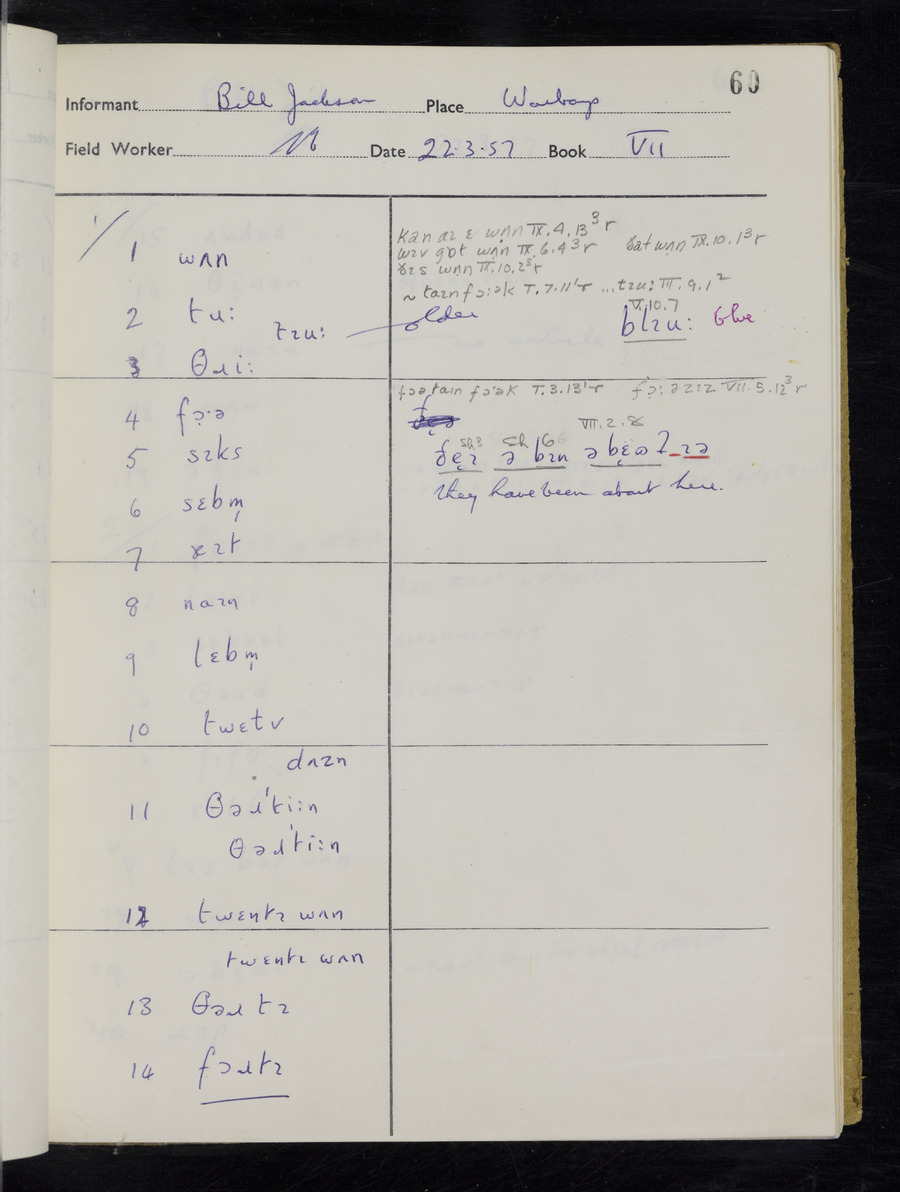 60
Informant Bill Jackson Place Warboys
Field Worker Date 22·3·57 Book VII
1/ 1 wʌn
kan aɪ ɛ wʌn IX.4.13³r
wɪv gɒt wʌn IX.6.4³r ðat wʌn IX.10.1³r
ðɪs wʌn IX.10.2³r
~ taɪn fɔ:ək I.7.11¹r ...tɪu: III.9.1²
2 tu: tɪu: older V.10.7
blɪu: blue
3 θɹi:
fɔətaɪn fɔ:ək I.3.13¹r fɔ̣: əzɪz VII.5.12³r
4 fɔ̣·ə
5 sɪks VII.2.8
ðẹɪ ə bɪn əbɛ̣ʊʔ ɪə
they have been about here.
6 sɛbm̩
7 ɛɪt
8 naɪn
9 lɛbm̩
10 twɛtv
dʌzn
11 θəɹˈti:n
θəɹˈti:n
12 twɛntɪ wʌn
twɛntɪ wʌn
13 θəɹtɪ
14 fɔɹtɪ